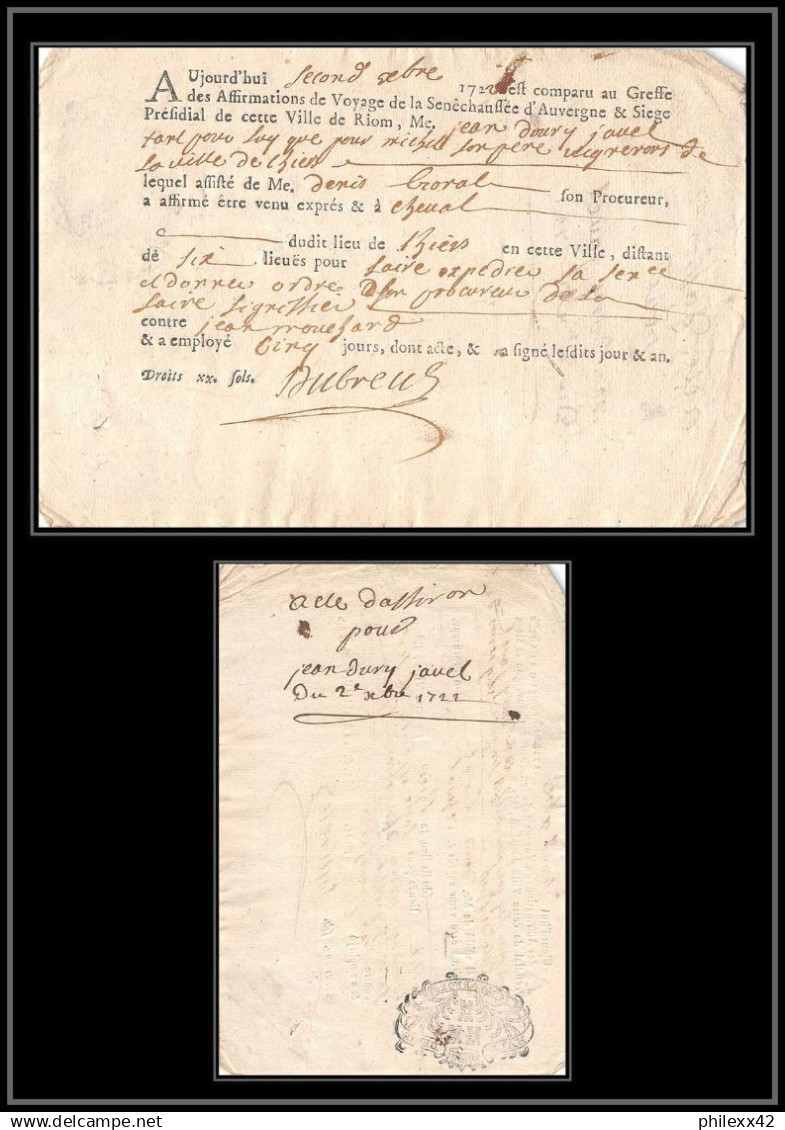 AUjourd'hui second xbre 1722 est comparu au Greffe
des Affirmations de Voyage de la Senêchaussée d'Auvergne & Siege
Présidial de cette Ville de Riom, Me. jean doury javel
tant pour luy que pour michel son père vignerons de
la ville de thiers
lequel assisté de Me. denis son Procureur,
a affirmé être venu exprés & à cheval
dudit lieu de thiers en cette Ville, distant
de six lieuës pour faire expedier sa
et donner ordre a son procureur de la
faire signiffier
contre jean mouchard
& a employé cinq jours, dont acte, & a signé lesdits jour & an.
Droits xx. sols. Dubreul
acte daffiron
pour
jean dury javel
Du 2e xbre 1722
philexx42